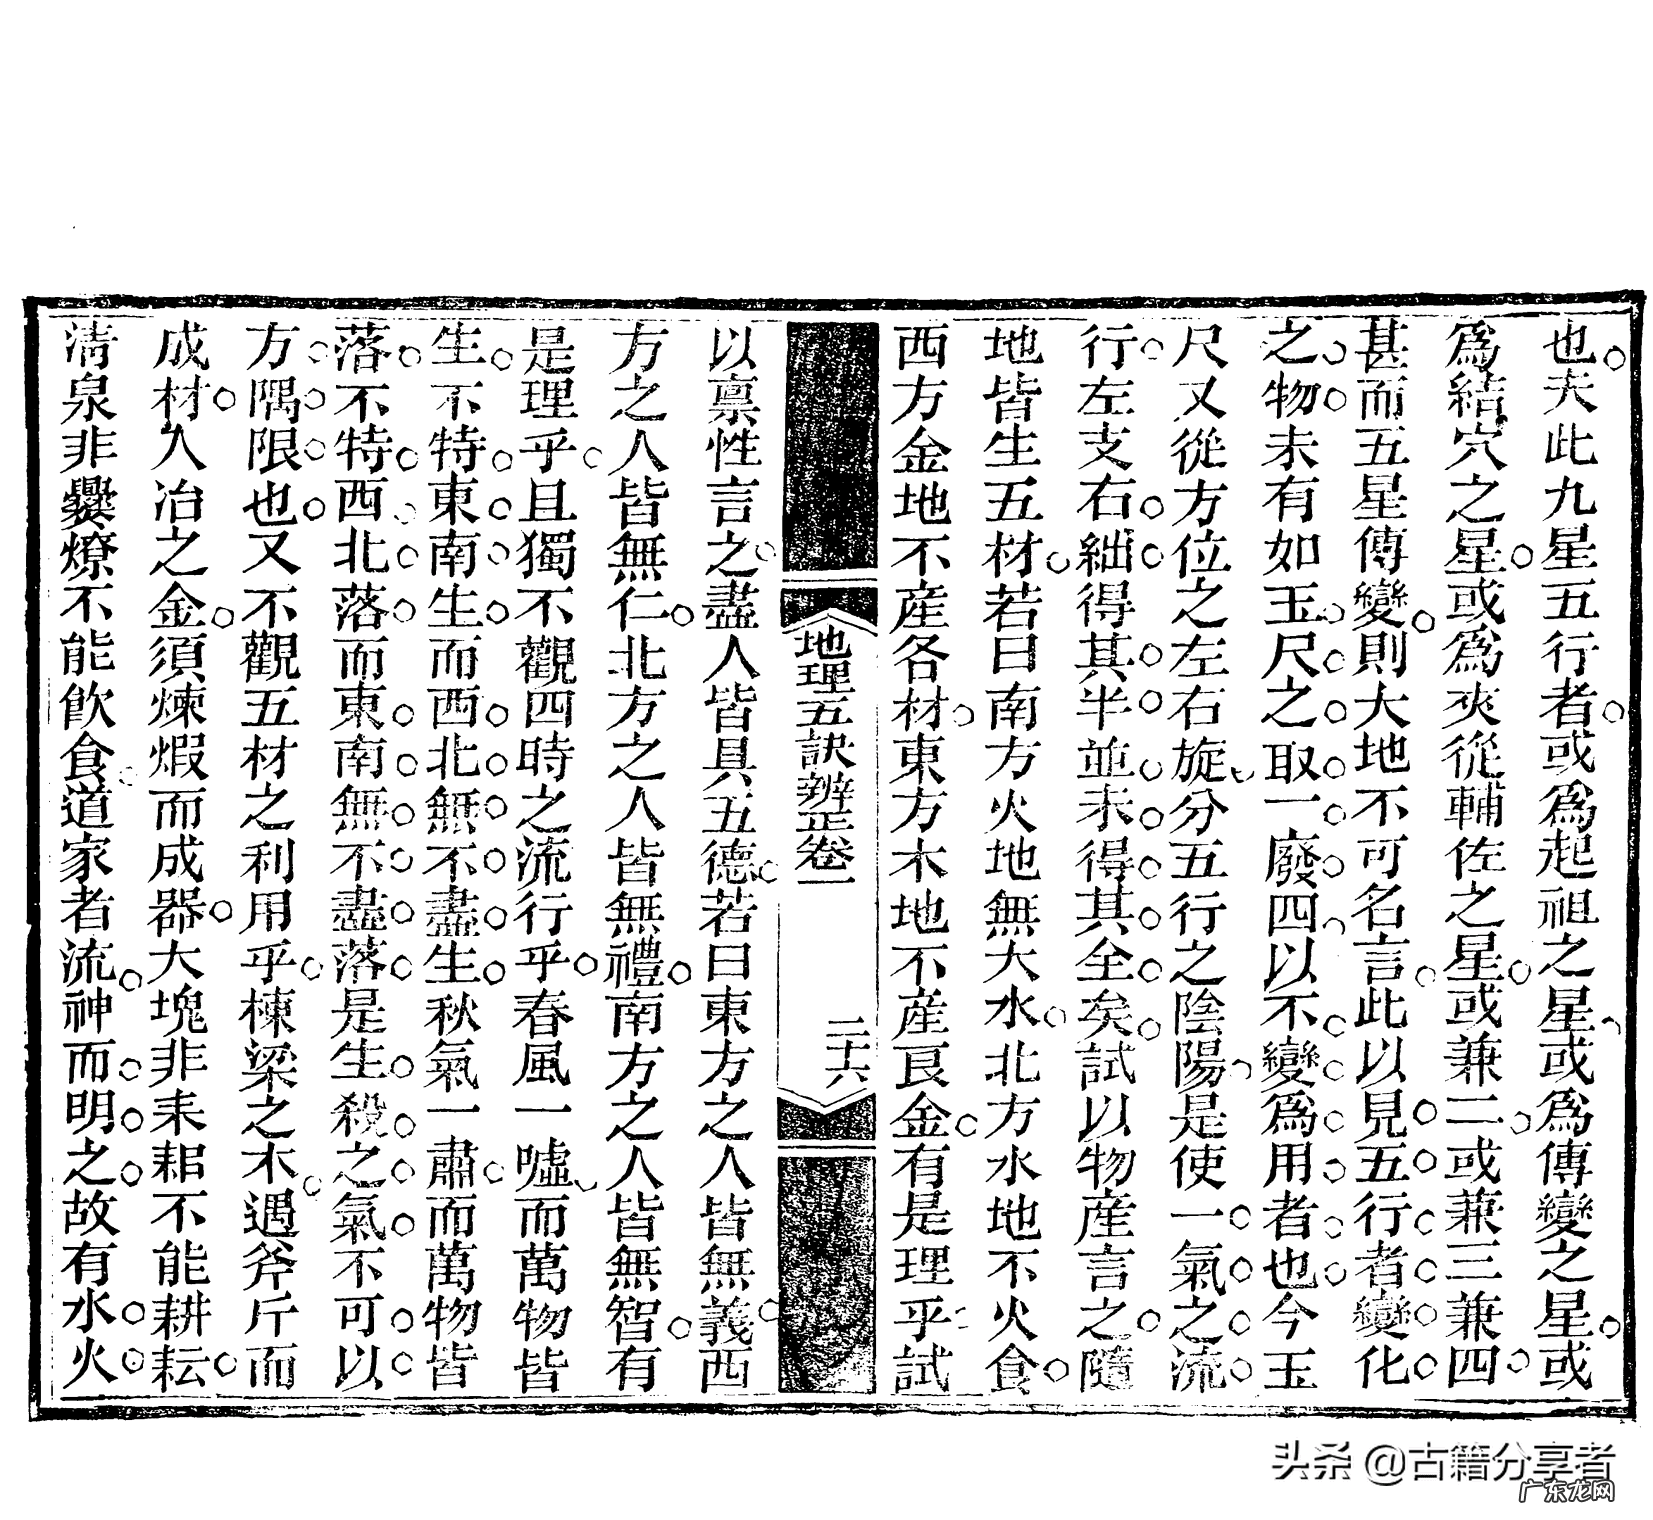 也夫此九星五行者或爲起祖之星或爲傳變之星或
爲結穴之星或爲夾從輔佐之星或兼二或兼三兼四
甚而五星傳變則大地不可名言此以見五行者變化
之物未有如玉尺之取一廢四以不變爲用者也今玉
尺又從方位之左右旋分五行之陰陽是使一氣之流
行左支右絀得其半並未得其全矣試以物產言之隨
地皆生五材若曰南方火地無大水北方水地不火食
西方金地不産各材東方木地不産艮金有是理乎試
地理五訣辨正卷一
二十六
以禀性言之盡人皆具五德若曰東方之人皆無義西
方之人皆無仁北方之人皆無禮南方之人皆無智有
是理乎且獨不觀四時之流行乎春風一噓而萬物皆
生不特東南生而西北無不盡生秋氣一肅而萬物皆
落不特西北落而東南無不盡落是生殺之氣不可以
方隅限也又不觀五材之利用乎棟梁之木遇斧斤而
成材人冶之金須煉煆而成器大塊非耒耜不能耕耘
清泉非爨燎不能飲食道家者流神而明之故有水火
头条 @古籍分享者
广东龙网